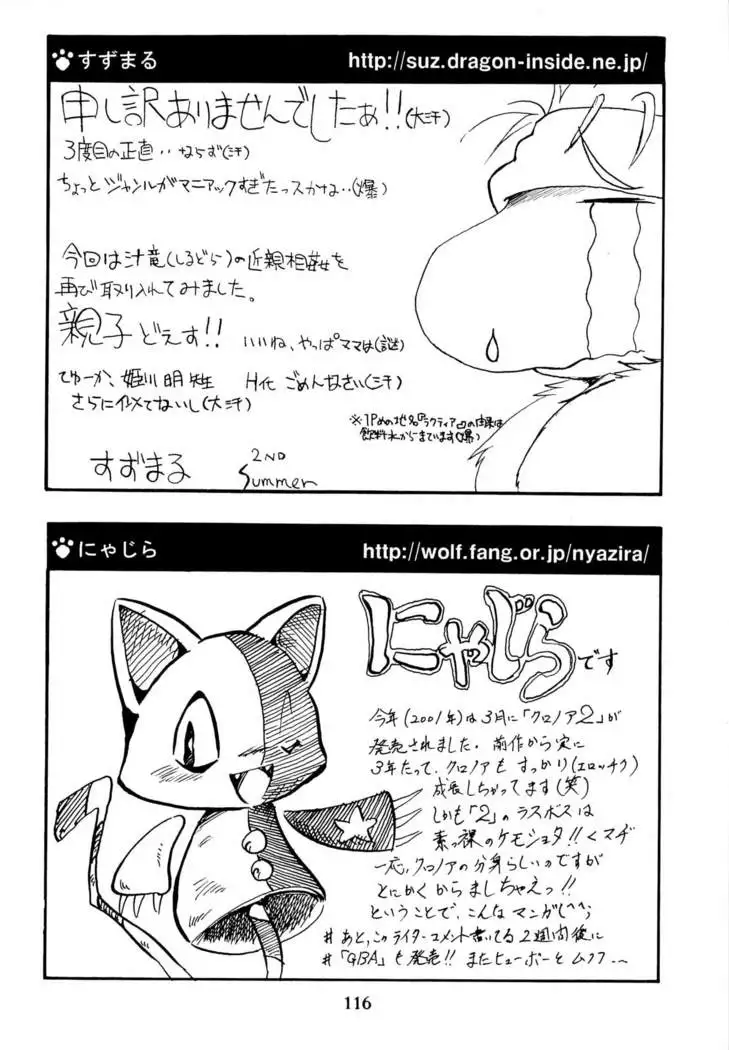 すずまる
http://suz.dragon-inside.ne.jp/
申し訳ありませんでしたぁ!!(大汗)
3度目の正直‥ならず(汗)
ちょっとジャンルがマニアックすぎたっスかね‥(爆)
今回は汁竜(しるどら)の近親相姦を
再び取り入れてみました。
親子どえす!! いいね、やっぱママは(謎)
てゆーか、姫川明先生 H化ごめんなさい(汗)
さらに似てないし(大汗)
※1Pめの地名『ラクティア』の由来は
飲料水からきています(爆)
すずまる 2ND
Summer
にゃじら
http://wolf.fang.or.jp/nyazira/
にゃじらです
今年(2001年)は3月に「クロノア2」が
発売されました。前作から実に
3年たって、クロノアもすっかり(エロッチク)
成長しちがってます(笑)
しかも「2」のラスボスは
素っ裸のケモショタ!!くマヂ
一応、クロノアの分身らしいのですが
とにかくからましちゃえっ!!
ということで、こんなマンガ(^^;
#あと、このライターコメント書いてる2週間後に
#「GBA」も発売!!またヒューポーとムフフ…~
116